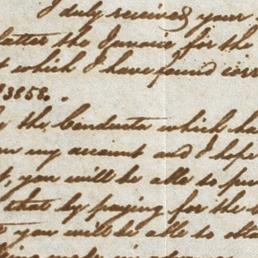 I duly received your
latter the Invoice for the
which I have found corr
3858.
the Conducta which ha
my account and I hope
you will be able to pu
by paying for the
you will be able to